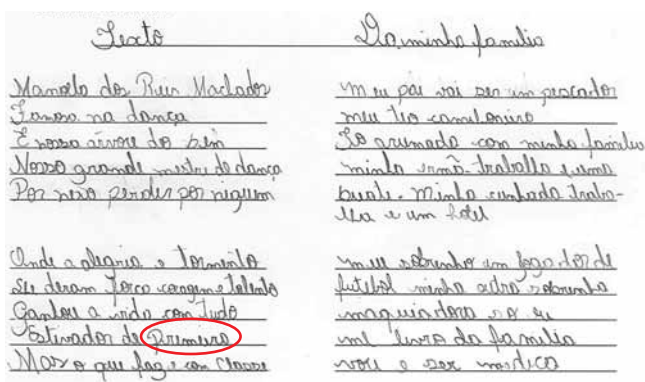 Texto
Manoelo dos Reis Machados
Famoso na dança
É nossa árvore do bem
Nosso grande mestre de dança
Por perder por niguem
Onde a alegria e tormento
Se deram força coragem e talento
Ganhou a vida com tudo
Estivador de Primeira
Mas o que faz e com Classe
Da minha familia
meu pai vai ser um pescador
meu tio camiloneiro
So arumado com minha familia
minha irmã trabalha e uma
buate. Minha cunhada traba-
lha e um hotel
meu sobrinho um jogador de
futebol minha outra sobrinha
maquiadora so eu
me livro da familia
vou e ser medica